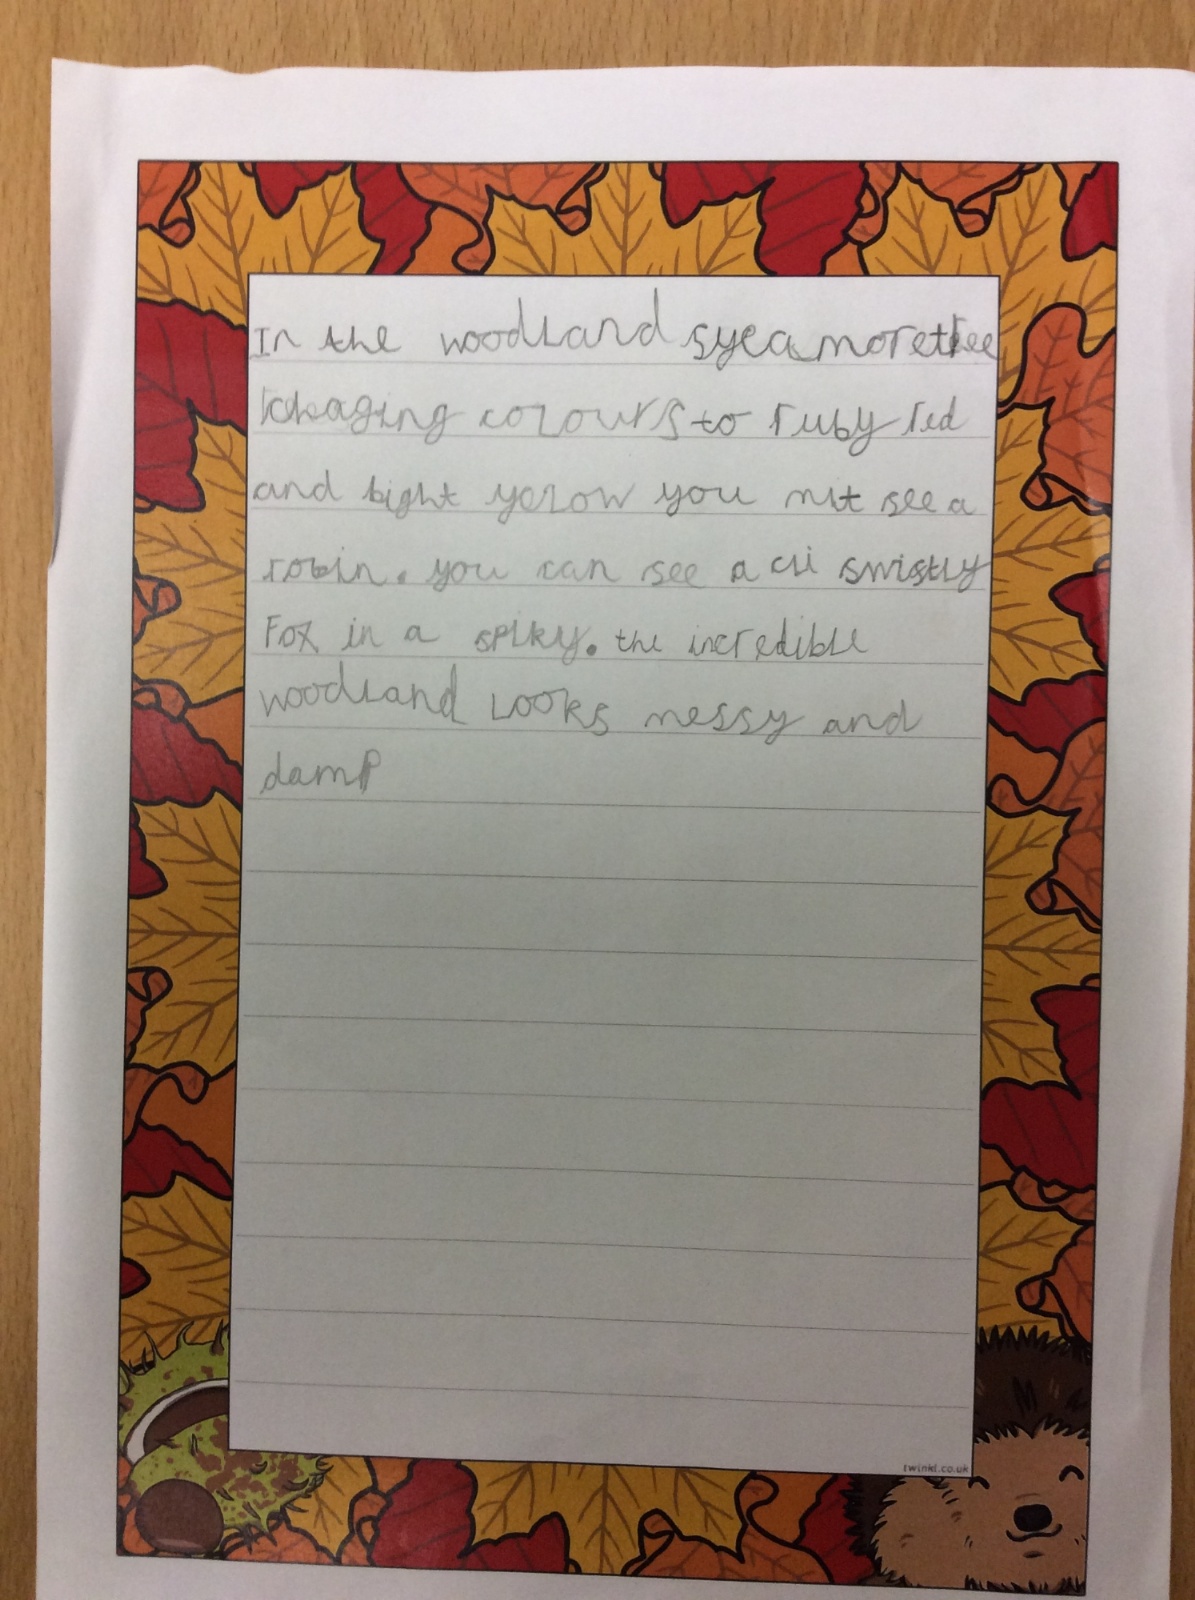 In the woodland sycamore tree
chaging colours to ruby red
and bight yelow you mit see a
robin. you can see a
Fox in a spiky. the incredible
woodland Looks messy and
damp
twinkl.co.uk